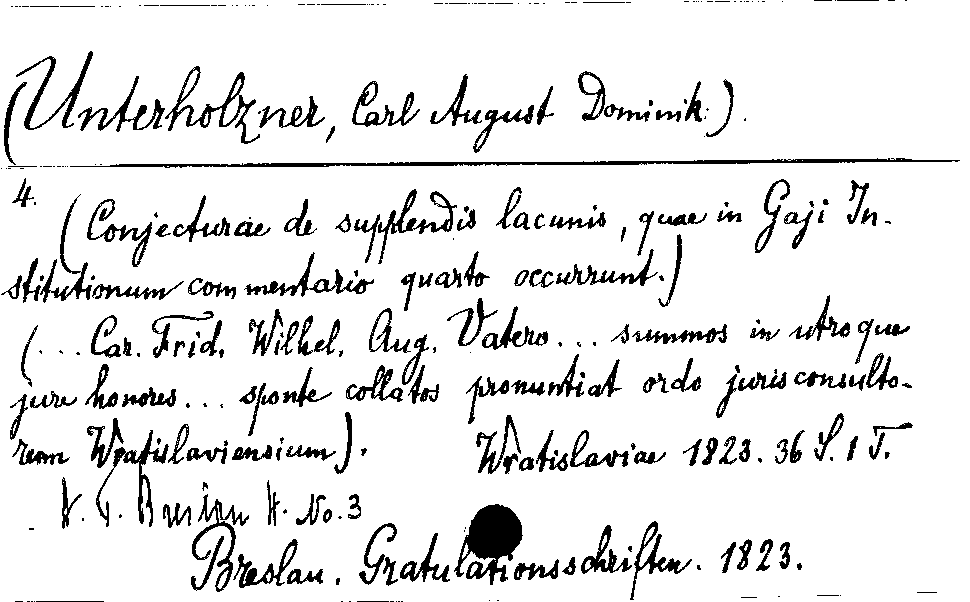 (Unterholzner, Carl August Dominik.)
4.
(Conjecturae de supplendis lacunis, quae in Gaji In-
stitutionum commentario quarto occurrunt.)
(... Car. Frid. Wilhel. Aug. Vatero ... summos in utroque
jure honores ... sponte collatos pronuntiat ordo jurisconsulto-
rum Wratislaviensium). Wratislaviae 1823. 36 S. 1 T.
Breslau No. 3
Breslau. Gratulationsschriften. 1823.